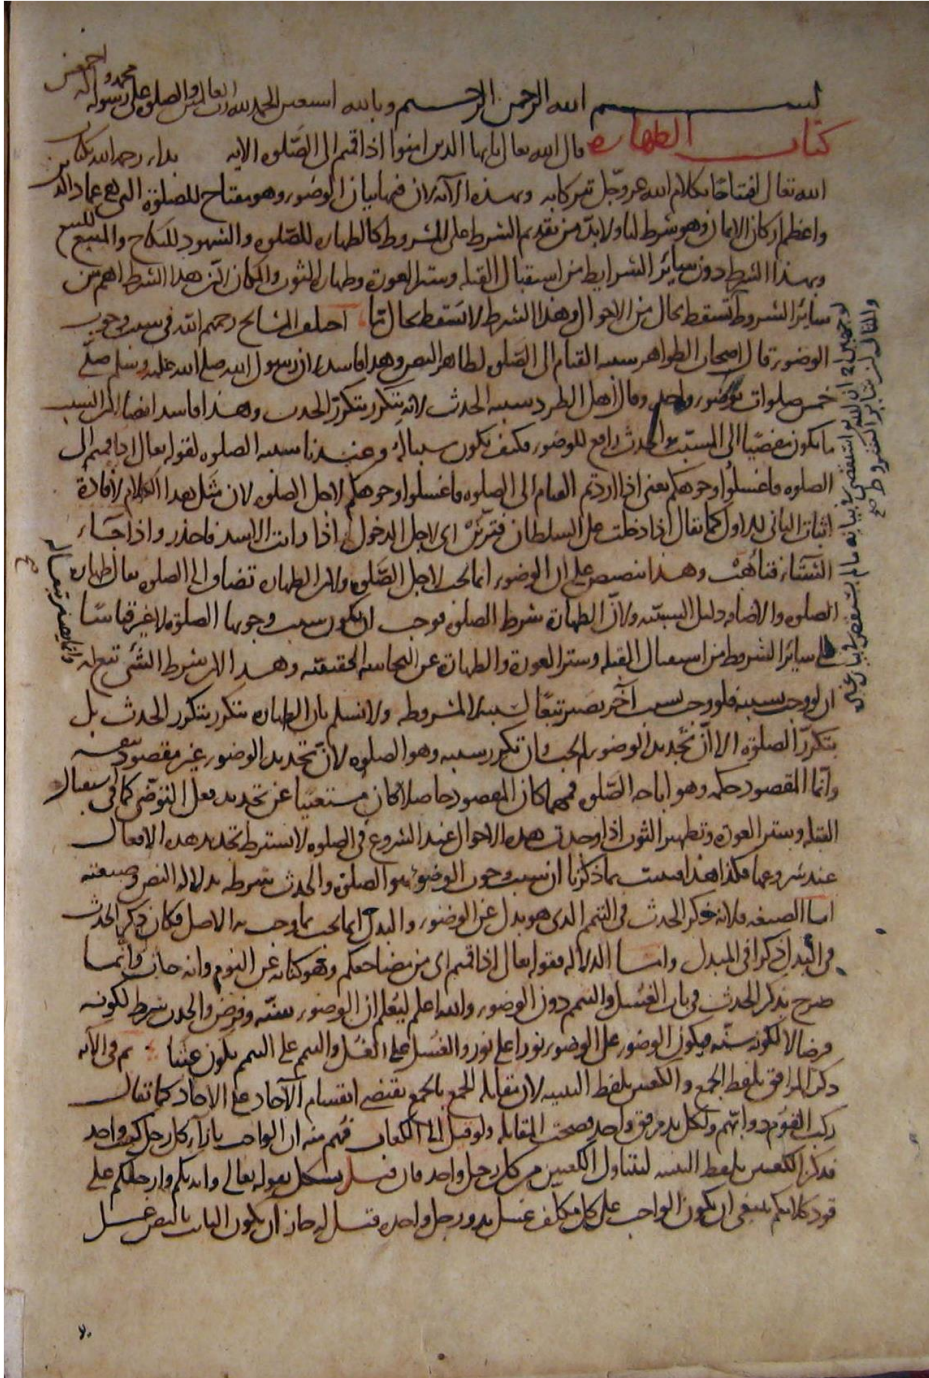 بسم الله الرحمن الرحيم وبالله استعين الحمد لله رب العالمين والصلوة على رسوله محمد وآله اجمعين
كتاب الطهارة قال الله تعالى يا ايها الذين امنوا اذا قمتم الى الصلوة الاية بداء رحمه الله بكتاب
الله تعالى افتتاحا بكلام الله عز وجل وبهذه الآية لان فيها بيان الوضوء وهو مفتاح للصلوة التي هي عماد الدين
واعظم اركان الايمان وهو شرط لها ولابد من تقديم الشرط على المشروط كالطهارة للصلوة والشهود للنكاح والمبيع للبيع
وبهذا الشرط دون سائر الشرايط من استقبال القبلة وستر العورة وطهارة الثوب والمكان لان هذا الشرط اهم من
سائر الشروط تسقط بحال من الاحوال وهذا الشرط لا تسقط بحال ما اختلف المشايخ رحمهم الله في سبب وجوب
الوضوء قال اصحاب الظواهر سببه القيام الى الصلوة لظاهر النص وهذا فاسد لان رسول الله صلى الله عليه وسلم صلى
خمس صلوات بوضوء واحد وقال اهل الطرد سببه الحدث لانه يتكرر بتكرر الحدث وهذا فاسد ايضا لان السبب
ما يكون مفضيا الى المسبب والحدث رافع للوضوء فكيف يكون سببا له وعندنا سببه الصلوة لقوله تعالى اذا قمتم الى
الصلوة فاغسلوا وجوهكم يعني اذا اردتم القيام الى الصلوة فاغسلوا وجوهكم لاجل الصلوة لان مثل هذا الكلام لافادة
اثبات الثاني للاول كما يقال اذا دخلت على السلطان فتزين اى لاجل الدخول اذا رايت الاسد فاحذر واذا جاء
الشتاء فتأهب وهذا تنصيص على ان الوضوء انما يجب لاجل الصلوة ولان الطهارة تضاف الى الصلوة يقال طهارة
الصلوة والاضافة دليل السببية ولان الطهارة شرط الصلوة فوجب ان يكون سبب وجوبها الصلوة لا غير قياسا
على سائر الشروط من استقبال القبلة وستر العورة والطهارة عن النجاسة الحقيقية وهذا لان شرط الشئ تبع له
لو وجب بسببه فلو وجب بسبب آخر يصير تبعا لسببه لا لمشروطه ولا نسلم بان الطهارة يتكرر بتكرر الحدث بل
بتكرر الصلوة الا ان تجديد الوضوء لم يجب وان تكرر سببه وهو الصلوة لان تجديد الوضوء غير مقصود بنفسه
وانما المقصود حكمه وهو اباحة الصلوة فمهما كان المقصود حاصلا كان مستغنيا عن تجديد فعل التوضى كما في استقبال
القبلة وستر العورة وتطهير الثوب اذا وجدت هذه الاحوال عند الشروع في الصلوة لا يشترط تجديد هذه الافعال
عند شروعها فكذا هذا فثبت بما ذكرنا ان سبب وجوب الوضوء هو الصلوة والحدث شرطه بدلالة النص وصيغته
اما الصيغة فلانه ذكر الحدث في التيمم الذي هو بدل عن الوضوء والبدل انما يجب بما وجب به الاصل فكان ذكر الحدث
في البدل ذكرا في المبدل واما الدلالة فقوله تعالى اذا قمتم اى من مضاجعكم وهو كناية عن النوم وانه حدث وانما
صرح بذكر الحدث في باب الغسل والتيمم دون الوضوء والله اعلم ليعلم ان الوضوء سنة وفرض والحدث شرط لكونه
فرضا لا لكونه سنة فيكون الوضوء على الوضوء نورا على نور والغسل على الغسل والتيمم على التيمم يكون عبثا ثم في الآية
ذكر المرافق بلفظ الجمع والكعبين بلفظ التثنية لان مقابلة الجمع بالجمع يقتضي انقسام الآحاد على الآحاد كما يقال
ركب القوم دوابهم ولكل يد مرفق واحد فصحت المقابلة ولو قيل الى الكعاب فهم منه ان الواجب بازاء كل رجل كعب واحد
فذكر الكعبين بلفظ التثنية لتتناول الكعبين من كل رجل واحد فان قيل يشكل بقوله تعالى وايديكم وارجلكم على
قود كلامكم ينبغي ان يكون الواجب على كل مكلف غسل يد ورجل واحدة قيل له جاز ان يكون الثابت بالنص غسل